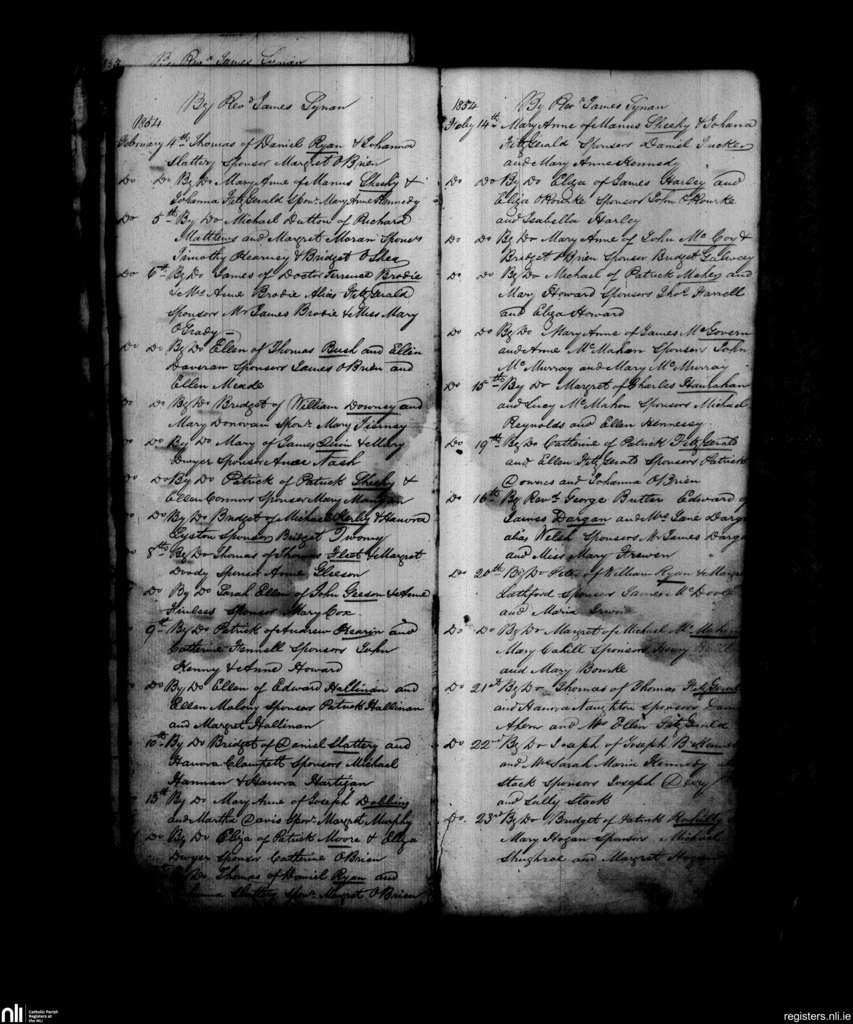 By Revd James Tynan
By Revd James Tynan
1854
February 4th Thomas of Daniel Ryan & Johanna
Slattery Sponsor Margret O'Brien
Do Do By Do Mary Anne of Manus Sheehy &
Johanna FitzGerald Sponr. Mary Anne Kennedy
Do 5th By Do Michael Dutton of Richard
Matthews and Margret Moran Sponsrs
Timothy Kearney & Bridget O'Shea
Do 6th By Do James of Doctor Terrence Brodie
& Mrs Anne Brodie Alias FitzGerald
Sponsors Mr James Brodie & Miss Mary
O'Grady
Do Do By Do Ellen of Thomas Bush and Ellen
Daveran Sponsors James O'Brien and
Ellen Meade
Do By Do Bridget of William Downey and
Mary Donovan Sponr. Mary Tierney
Do By Do Mary of James & Mary
Dwyer Sponsor Nash
Do By Do Patrick of Patrick Sheehy &
Ellen Connors Sponsor Mary
Do By Do Bridget of Michael & Hanora
Sponsor Bridget Twomy
8th By Do Thomas of Thomas & Margret
Doody Sponsor Anne Gleeson
Do By Do Sarah Ellen of John & Anne
Sponsor Mary Cox
9th By Do Patrick of Andrew and
Catherine Fennell Sponsors John
Kenny & Anne Howard
Do By Do Ellen of Edward Hallinan and
Ellen Malony Sponsors Patrick Hallinan
and Margret Hallinan
10th By Do Bridget of Daniel Slattery and
Hanora Sponsors Michael
Hannan & Hanora Hartigan
13th By Do Mary Anne of Joseph Dobbins
and Martha Davis Sponr. Margret Murphy
Do By Do Eliza of Patrick Moore & Eliza
Dwyer Sponsor Catherine O'Brien
By Do Thomas of Daniel Ryan and
Slattery Sponr. Margret O'Brien
1854 By Revd James Tynan
Feby 14th Mary Anne of Manus Sheehy & Johanna
FitzGerald Sponsors Daniel Tucker
and Mary Anne Kennedy
Do Do By Do Eliza of James Harley and
Eliza O'Rourke Sponsors John O'Rourke
and Isabella Harley
Do Do By Do Mary Anne of John McCoy &
Bridget O'Brien Sponsor Bridget
Do Do By Do Michael of Patrick Maher and
Mary Howard Sponsors Thos. Farrell
and Eliza Howard
Do Do By Do Mary Anne of James McGovern
and Anne McMahon Sponsors John
McMurray and Mary McMurray
Do 15th By Do Margret of Charles Hanrahan
and Lucy McMahon Sponsors Michael
Reynolds and Ellen Hennessy
Do 19th By Do Catherine of Patrick FitzGerald
and Ellen FitzGerald Sponsors Patrick
Downes and Johanna O'Brien
Do 16th By Revd. George Butler Edward of
James Dargan and Mrs Jane
alias Welsh Sponsors Mr James
and Miss Mary Frewen
Do 20th By Do Peter of William Ryan &
Sponsors James
and Maria Irwin
Do Do By Do Margret of Michael
Mary Cahill Sponsors
and Mary Bourke
Do 21st By Do Thomas of Thomas
and Hanora Naughten Sponsors
Ahern and Mrs Ellen FitzGerald
Do 22nd By Do Joseph of Joseph B
and Mrs Sarah Maria Kennedy
Stack Sponsors Joseph
and Sally Stack
Do 23rd By Do Bridget of Patrick
Mary Hogan Sponsors Michael
and Margret Hogan
nli
Catholic Parish
Registers at
the NLI
registers.nli.ie